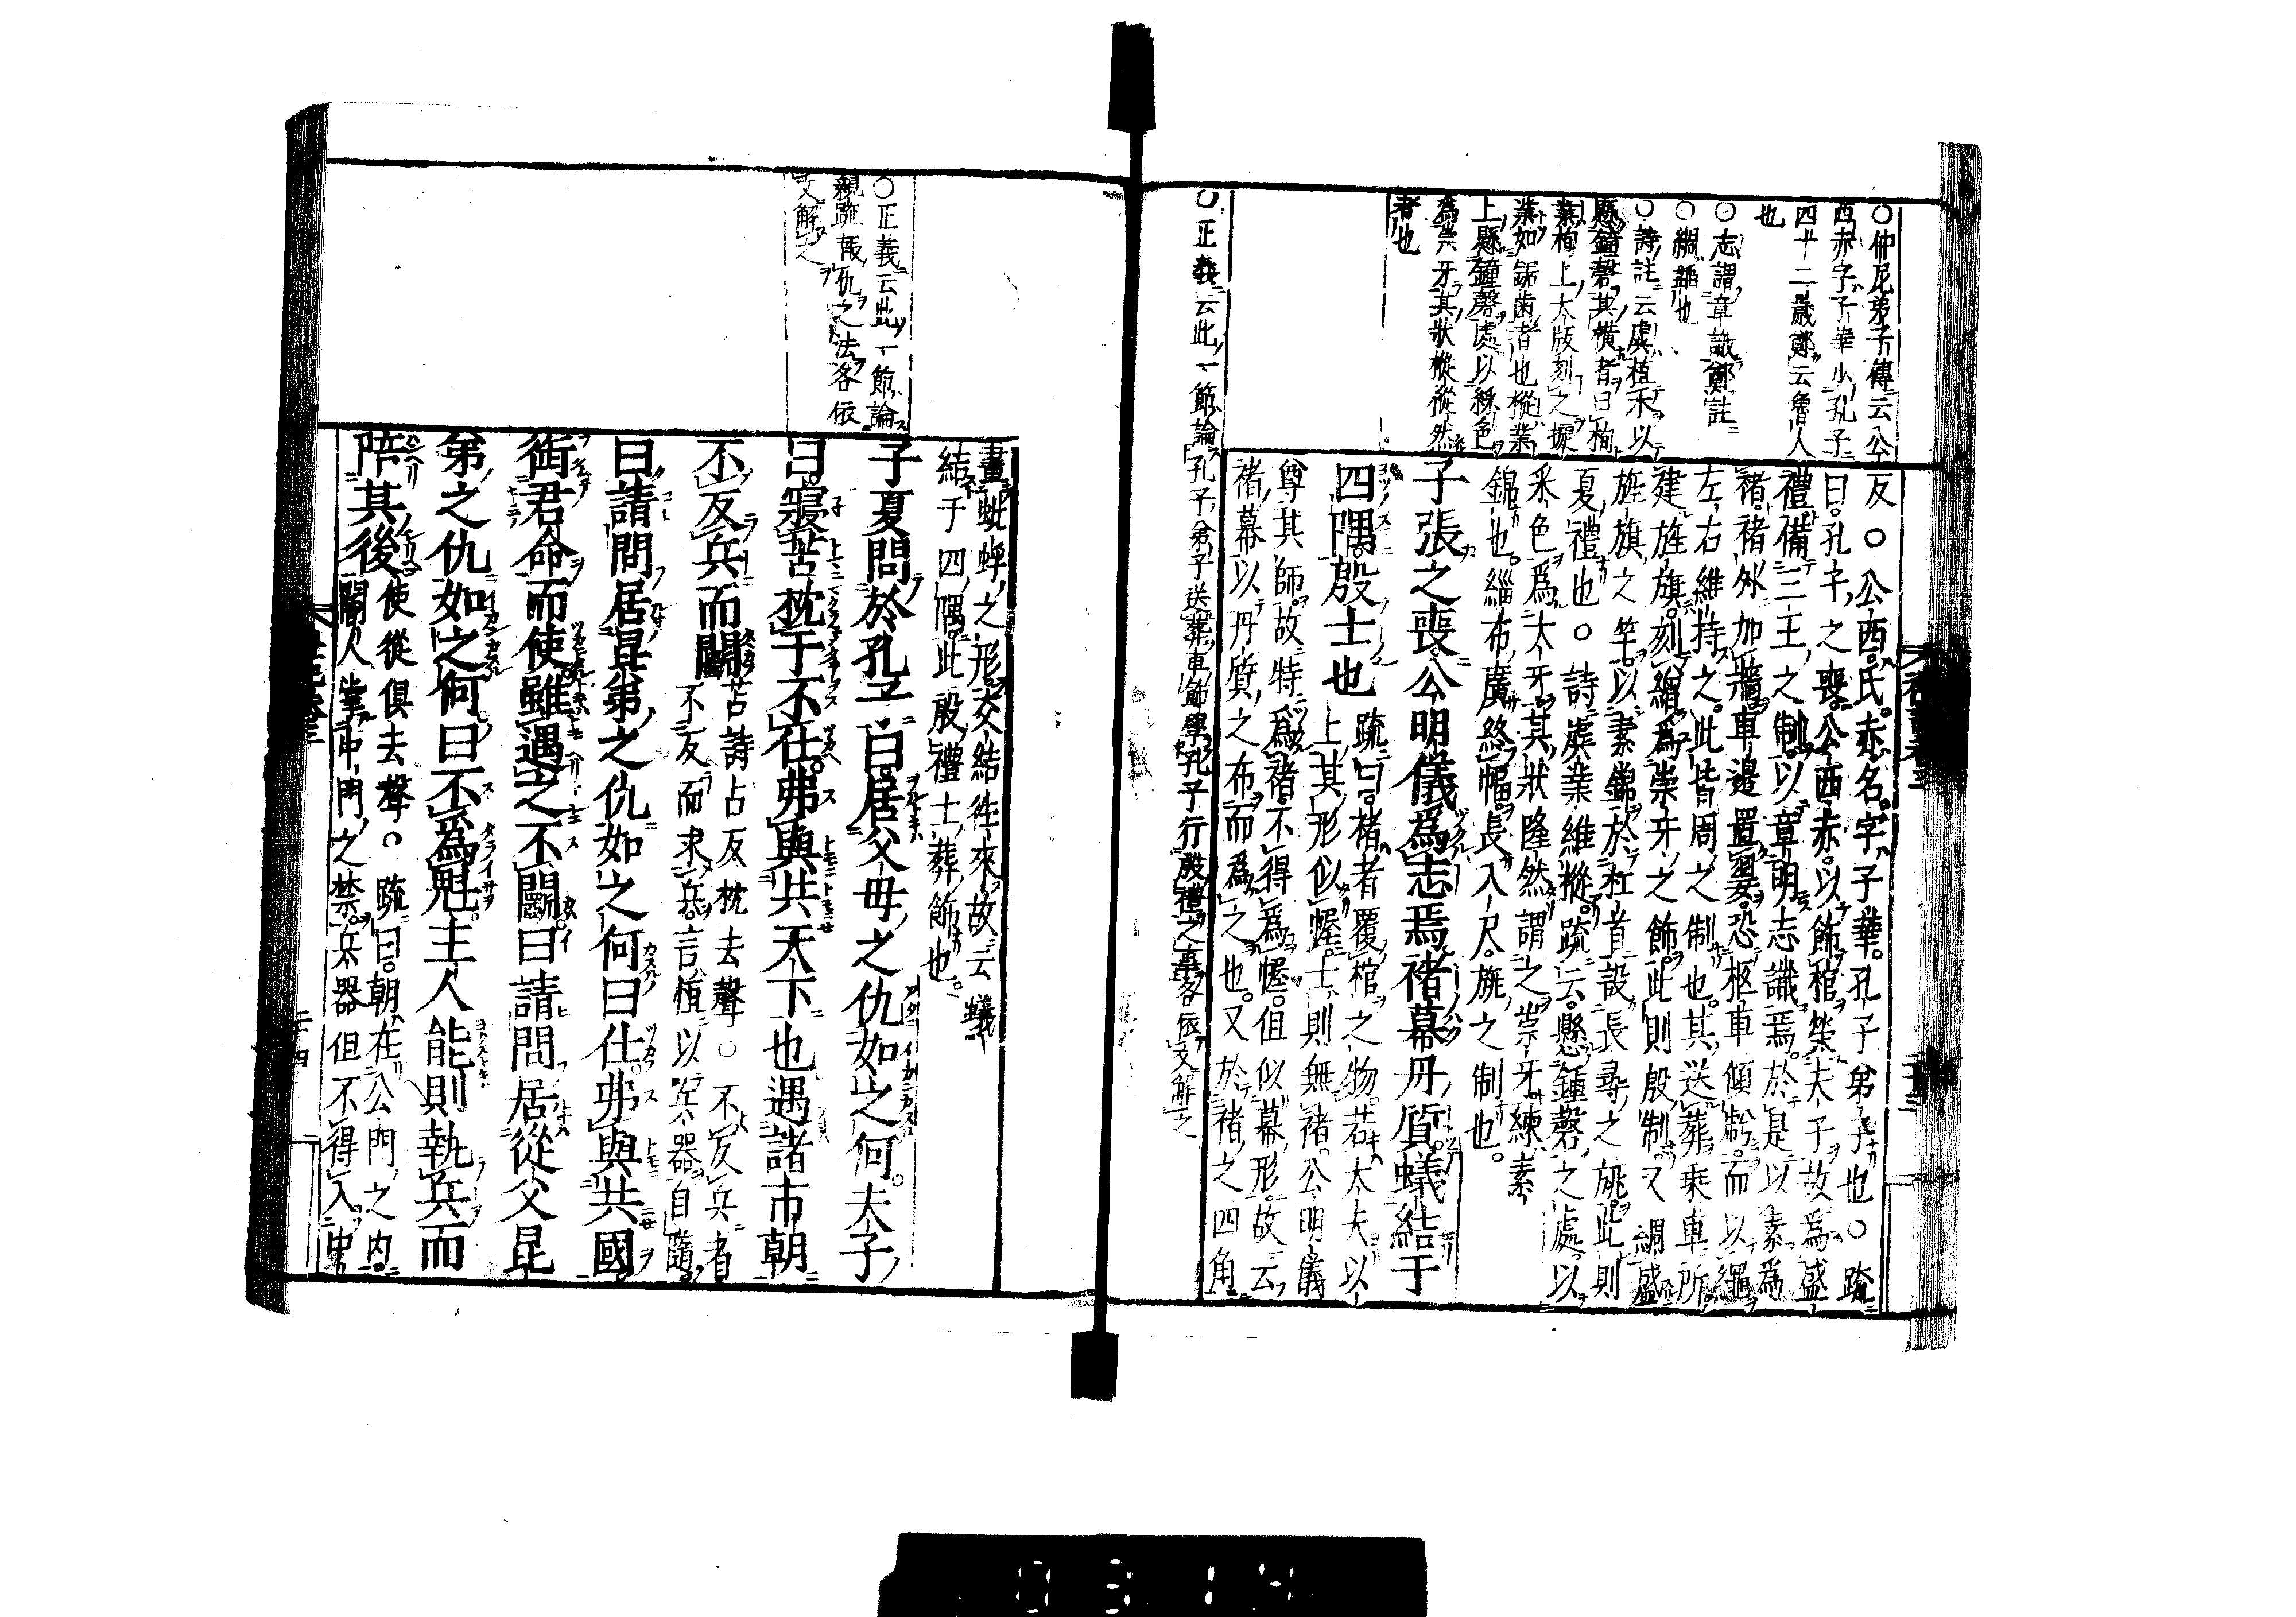 ○仲尼弟子傳云公
西赤字子華少孔子
四十二歲鄭云魯人
也
○志謂章識鄭註
○綢韜也
○詩註云虡植木以
懸鐘磬其橫者曰栒
業栒上大版刻之捷
業如鋸齒者也樅業
上懸鐘磬處以綵色
為崇牙其狀樅樅然
者也
反○公西氏赤名字子華孔子弟子也○疏
曰孔子之喪公西赤以飾棺榮夫子故為盛
禮備三王之制以章明志識焉於是以素為
褚褚外加牆車邊置翣恐柩車傾虧而以繩
左右維持之此皆周之制也其送葬乘車所
建旌旗刻繒為崇牙之飾此則殷制又綢盛
旌旗之竿以素錦於杠首設長尋之旐此則
夏禮也○詩虡業維樅疏云懸鍾磬之處以
采色為大牙其狀隆然謂之崇牙練素
錦也緇布廣終幅長八尺旐之制也
子張之喪公明儀為志焉褚幕丹質蟻結于
四隅殷士也
疏曰褚者覆棺之物若大夫以
上其形似幄士則無褚公明儀
尊其師故特為褚不得為幄但似幕形故云
褚幕以丹質之布而為之也又於褚之四角
○正義云此一節論孔子弟子送葬車飾學孔子行殷禮之事各依文解之
畫蚍蜉之形交結往來故云蟻
結于四隅此殷禮士葬飾也
○正義云此一節論
親疏報仇之法各依
文解之
子夏問於孔子曰居父母之仇如之何夫子
曰寢苫枕干不仕弗與共天下也遇諸市朝
不反兵而鬭
苫詩占反枕去聲○不反兵者
不反而求兵言恆以兵器自隨
曰請問居昆弟之仇如之何曰仕弗與共國
銜君命而使雖遇之不鬭曰請問居從父昆
弟之仇如之何曰不為魁主人能則執兵而
陪其後
使從俱去聲○疏曰朝在公門之內
閽人掌中門之禁兵器但不得入中
二十四
0314